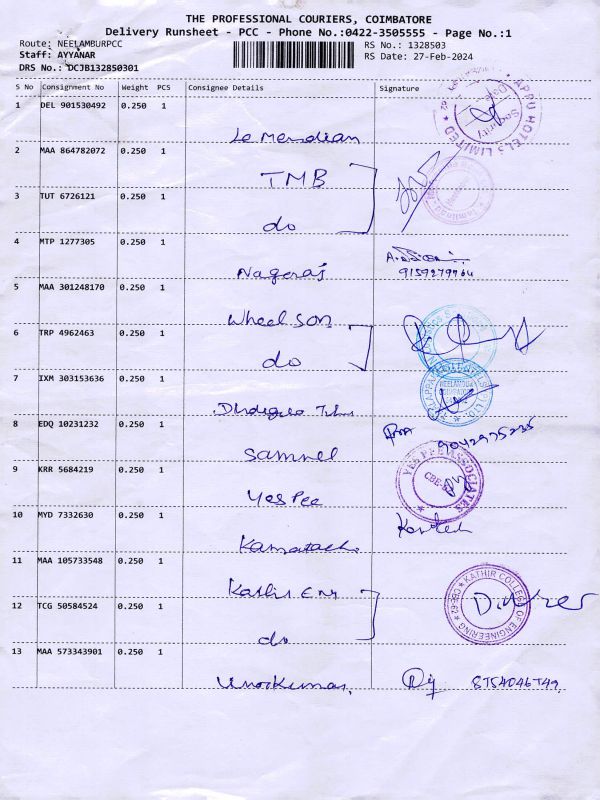 THE PROFESSIONAL COURIERS, COIMBATORE
Delivery Runsheet - PCC - Phone No.:0422-3505555 - Page No.:1
Route: NEELAMBURPCC
RS No.: 1328503
Staff: AYYANAR
RS Date: 27-Feb-2024
DRS No.: DCJB132850301
S No Consignment No Weight PCS Consignee Details Signature
1 DEL 901530492 0.250 1
Le Meridian
2 MAA 864782072 0.250 1
TMB
3 TUT 6726121 0.250 1
do
4 MTP 1277305 0.250 1
Nageraj
9159279764
5 MAA 301248170 0.250 1
Wheel SON
6 TRP 4962463 0.250 1
do
7 IXM 303153636 0.250 1
8 EDQ 10231232 0.250 1
9042975235
Samuel
9 KRR 5684219 0.250 1
YES PEE ASSOCIATES
Yes Pee
10 MYD 7332630 0.250 1
11 MAA 105733548 0.250 1
Kathir Eng
KATHIR COLLEGE OF ENGINEERING
CBE-62
12 TCG 50584524 0.250 1
do
13 MAA 573343901 0.250 1
8754046749